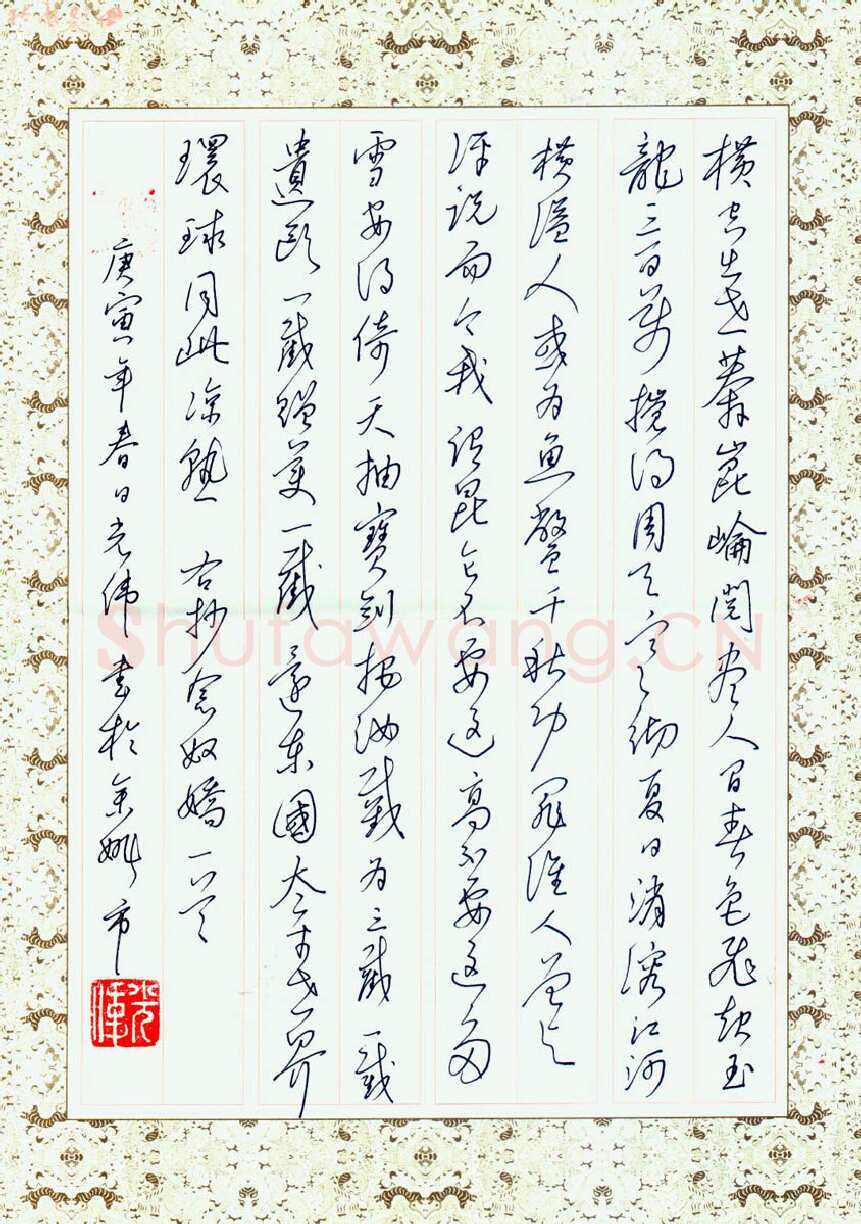 横空出世莽崑崙閱尽人间春色飛起玉
龍三百萬攪得周天寒彻夏日消溶江河
横溢人或为鱼鳖千秋功罪谁人曾与
评说而今我谓昆仑不要这高不要这多
雪安得倚天抽寶剑把汝裁为三截一截
遺欧一截贈美一截還东國太平世界
環球同此凉热 右抄念奴嬌一首
庚寅年春日光伟书於余姚市
光偉
Shufawang.CN